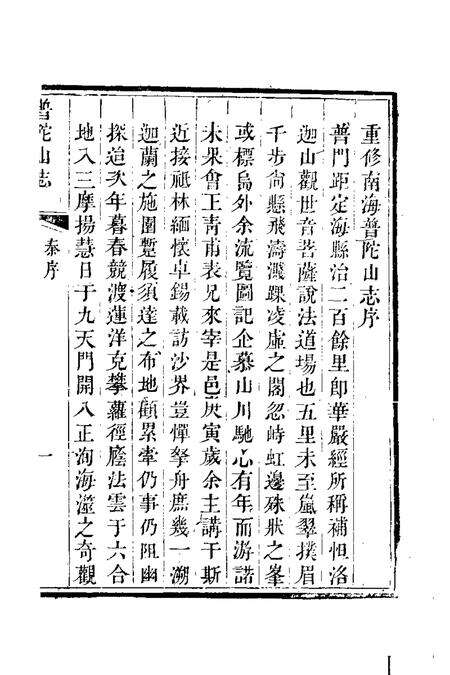 重修南海普陀山志序
普門距定海縣治二百餘里即華嚴經所稱補怛洛
迦山觀世音菩薩說法道場也五里未至嵐翠撲眉
千步尚懸飛濤濺踝凌虛之閣忽峙虹邊殊狀之峯
或標島外余流覽圖記企慕山川馳心有年而游諾
未果會王靑甫表兄來宰是邑庚寅歲余主講于斯
近接祗林緬懷卓錫載訪沙界豈憚孥舟庶幾一溯
迦蘭之施園蹔履須達之布地顧累牽仍事仍阻幽
探迨次年暮春競渡蓮洋克攀蘿徑廕法雲于六合
地入三摩揚慧日于九天門開八正洵海澨之奇觀
普陀山志
秦序
一